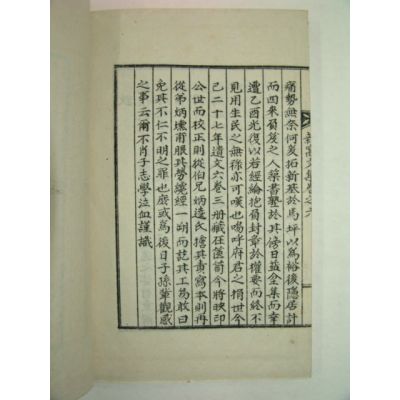 窩文集卷之六
痛勢無奈何爰拓新基於馬坪以爲裕後隱居計
而四來負笈之人築書塾於其傍日益全集而幸
遭乙酉光復以若經綸抱負封章於權要而終不
見用生民之無祿亦可嘆也嗚呼府君之捐世今
已二十七年遺文六卷三冊藏在篋笥今將映印
公世而校正則從伯兄炳造氏擔其責寫本則再
從弟炳壎甫服其勞纔經一朔而訖其工焉敢曰
免其不仁不明之罪也歟或爲後日子孫輩觀感
之事云爾不肖子志學泣血謹識